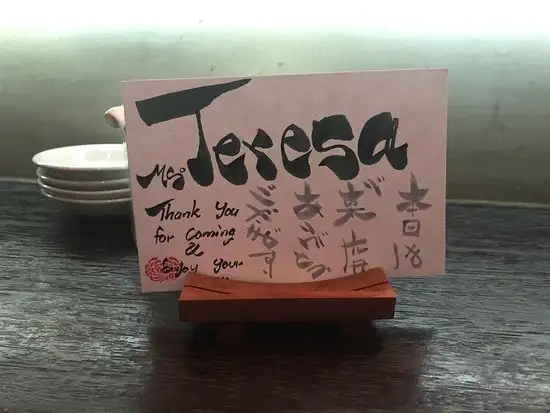 Ms. Teresa
Thank You
for Coming
&
Enjoy your
本日は
ご来店
ありがとう
ございます。